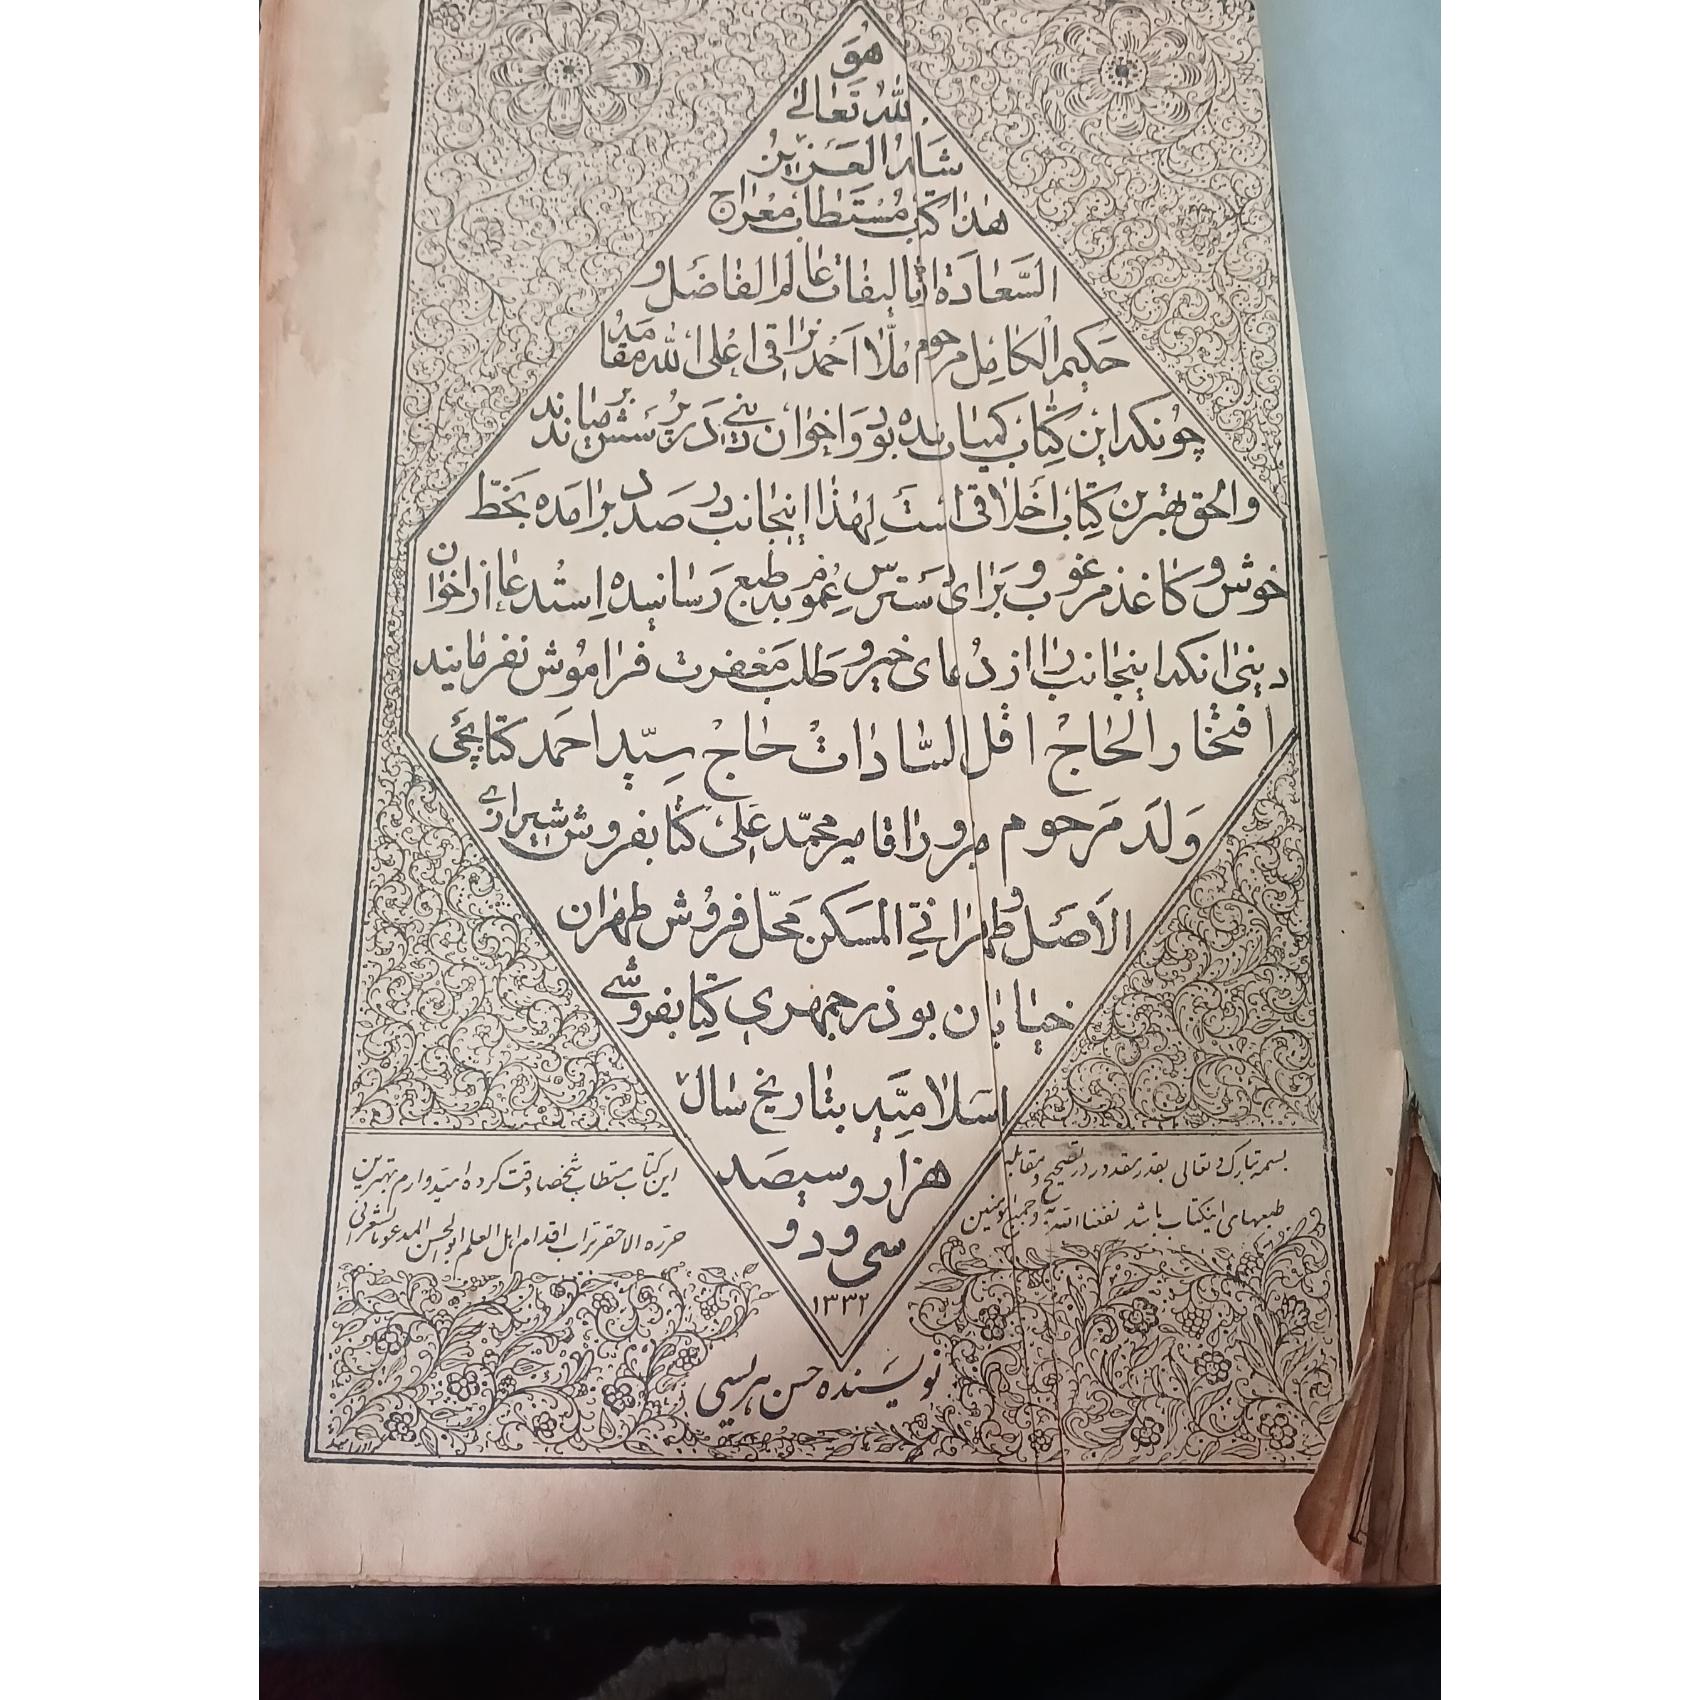 هو
الله تعالی
شانه العزیز
هذا کتاب مستطاب معراج
السعادة از تالیفات عالم الفاضل و
حکیم الکامل مرحوم ملا احمد نراقی اعلی الله مقامه
چونکه این کتاب کمیاب شده بود و اخوان دینی در پرسشش میباشند
والحق بهترین کتاب اخلاقی است لهذا اینجانب در صدد برآمده بخط
خوش و کاغذ مرغوب و برای دسترس عموم به طبع رسانیده استدعا از اخوان
دینی انکه اینجانب را از دعای خیر و طلب مغفرت فراموش نفرمایند
افتخار الحاج اقل السادات حاج سید احمد کتابچی
ولد مرحوم مبرور اقا میر محمد علی کتابفروش شیرازی
الاصل و طهرانی المسکن محل فروش طهران
خیابان بوذرجمهری کتابفروشی
اسلامیه بتاریخ سال
هزار و سیصد
سی و دو
۱۳۳۲
بسمه تبارک و تعالی بقدر مقدور در تصحیح و مقابله
این کتاب مستطاب شخصا دقت کرده امیدوارم بهترین
طبعهای اینکتاب باشد نفعنا الله به و جمیع المؤمنین
حرره الاحقر تراب اقدام اهل العلم ابوالحسن المدعو بالشعرانی
نویسنده حسن هریسی